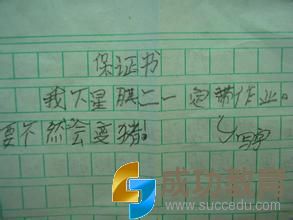 保证书
我下星期二一定带作业。
要不然会变猪!
成功教育
www.succedu.com